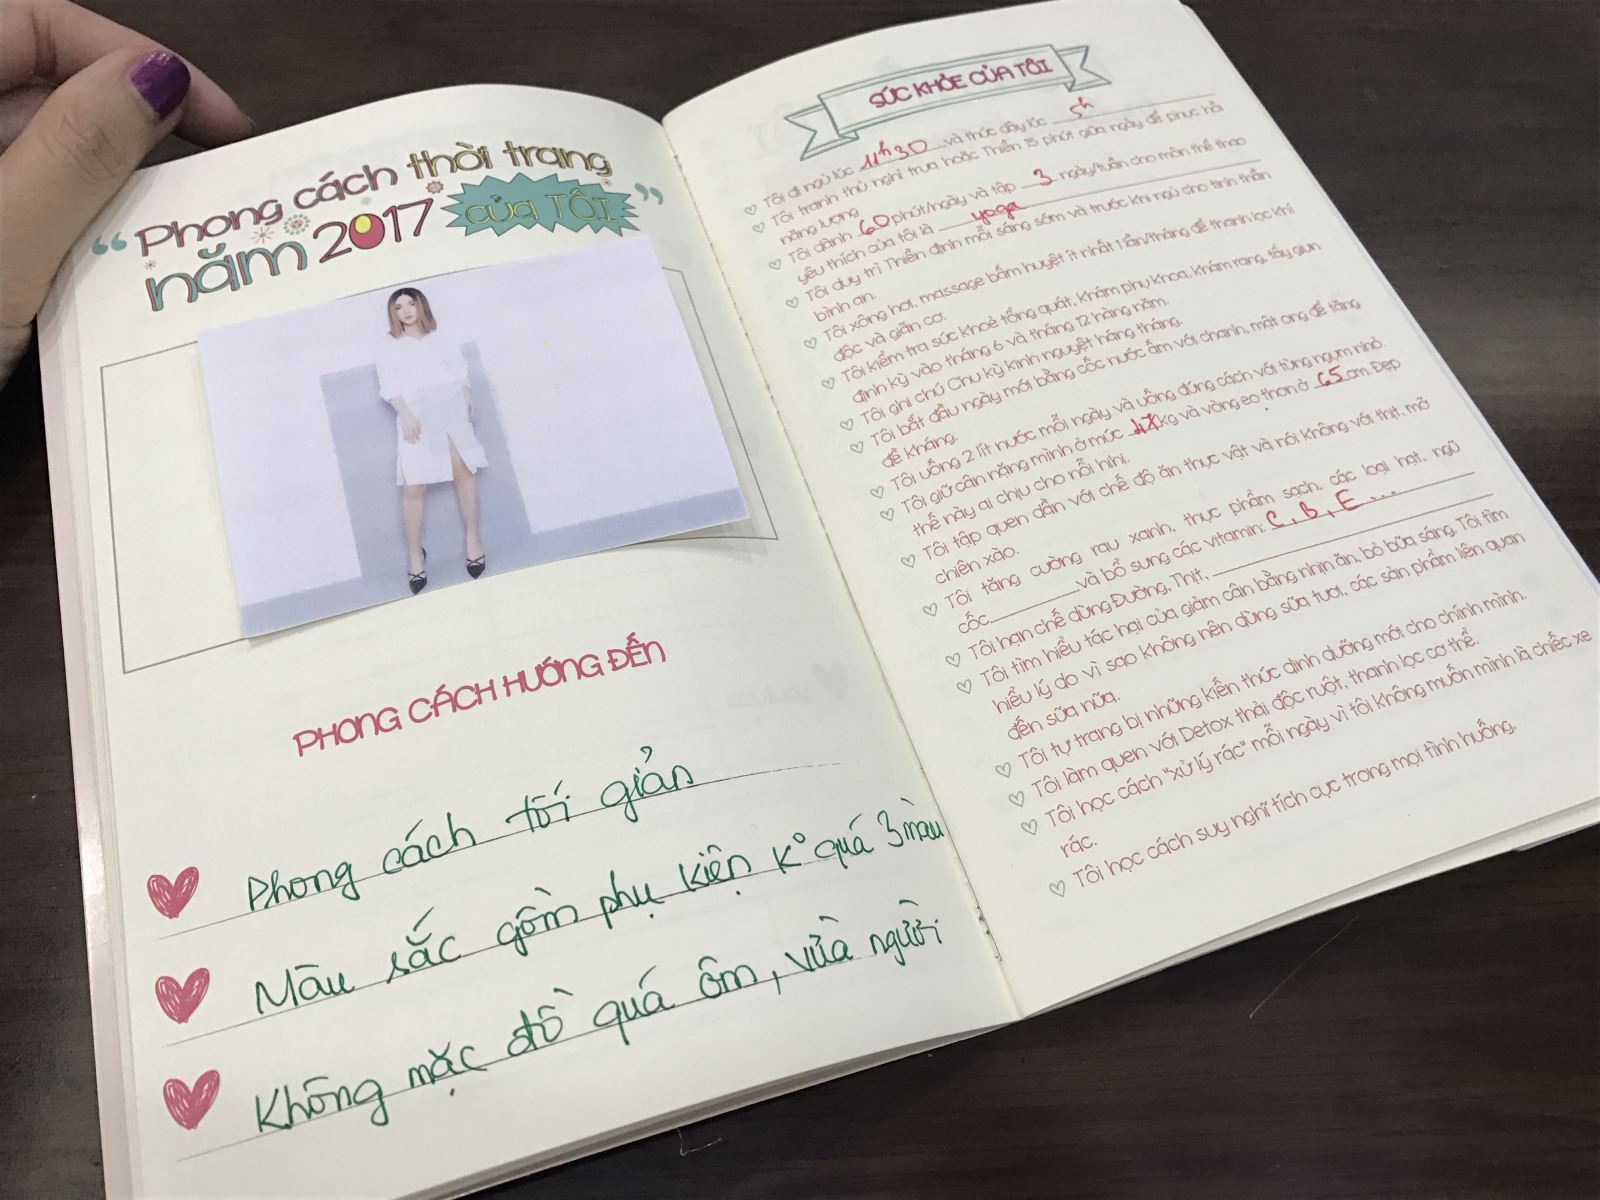 Phong cách thời trang
năm 2017 của TÔI
PHONG CÁCH HƯỚNG ĐẾN
Phong cách tối giản
Màu sắc gồm phụ kiện K° quá 3 màu
Không mặc đồ quá ôm, vừa người
SỨC KHỎE CỦA TÔI
Tôi đi ngủ lúc 11h30 và thức dậy lúc 5h
Tôi tranh thủ nghỉ trưa hoặc Thiền 15 phút giữa ngày để phục hồi
năng lượng
Tôi dành 60 phút/ngày và tập 3 ngày/tuần cho môn thể thao
yêu thích của tôi là yoga
Tôi duy trì Thiền định mỗi sáng sớm và trước khi ngủ cho tinh thần
bình an.
Tôi xông hơi, massage bấm huyệt ít nhất 1 lần/tháng để thanh lọc khí
độc và giãn cơ.
Tôi kiểm tra sức khoẻ tổng quát, khám phụ khoa, khám răng, tẩy giun
định kỳ vào tháng 6 và tháng 12 hàng năm.
Tôi ghi chú Chu kỳ kinh nguyệt hàng tháng.
Tôi bắt đầu ngày mới bằng cốc nước ấm với chanh, mật ong để tăng
đề kháng.
Tôi uống 2 lít nước mỗi ngày và uống đúng cách với từng ngụm nhỏ.
Tôi giữ cân nặng mình ở mức kg và vòng eo thon ở 65 cm. Đẹp
thế này ai chịu cho nổi hihi.
Tôi tập quen dần với chế độ ăn thực vật và nói không với thịt, mỡ
chiên xào.
Tôi tăng cường rau xanh, thực phẩm sạch, các loại hạt, ngũ
cốc và bổ sung các vitamin: C, B, E ...
Tôi hạn chế dùng Đường, Thịt,
Tôi tìm hiểu tác hại của giảm cân bằng nhịn ăn, bỏ bữa sáng. Tôi tìm
hiểu lý do vì sao không nên dùng sữa tươi, các sản phẩm liên quan
đến sữa nữa.
Tôi tự trang bị những kiến thức dinh dưỡng mới cho chính mình.
Tôi làm quen với Detox thải độc ruột, thanh lọc cơ thể.
Tôi học cách "xử lý rác" mỗi ngày vì tôi không muốn mình là chiếc xe
rác.
Tôi học cách suy nghĩ tích cực trong mọi tình huống.